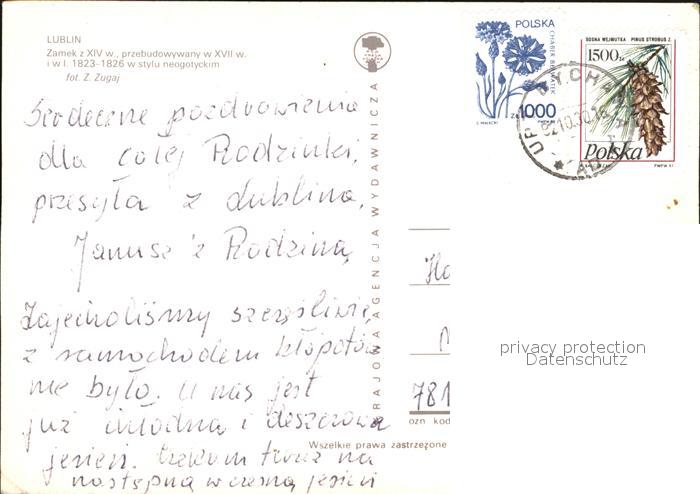 LUBLIN
Zamek z XIV w., przebudowywany w XVII w.
i w l. 1823–1826 w stylu neogotyckim
fot. Z. Zugaj
POLSKA
CHABER BŁAWATEK
Zł 1000
SOSNA WEJMUTKA PINUS STROBUS Z.
1500 zł
Polska
PWPW 91
UPT
92.10.30.16
KRAJOWA AGENCJA WYDAWNICZA
Serdeczne pozdrowienia
dla całej Rodzinki,
przesyła z Lublina,
Janusz z Rodziną
Zajechaliśmy szczęśliwie,
z samochodem kłopotów
nie było. U nas jest
już chłodna i deszczowa
jesień. Czekam teraz na
następną wczesną jesień
781
ozn kod
Wszelkie prawa zastrzeżone
privacy protection
Datenschutz